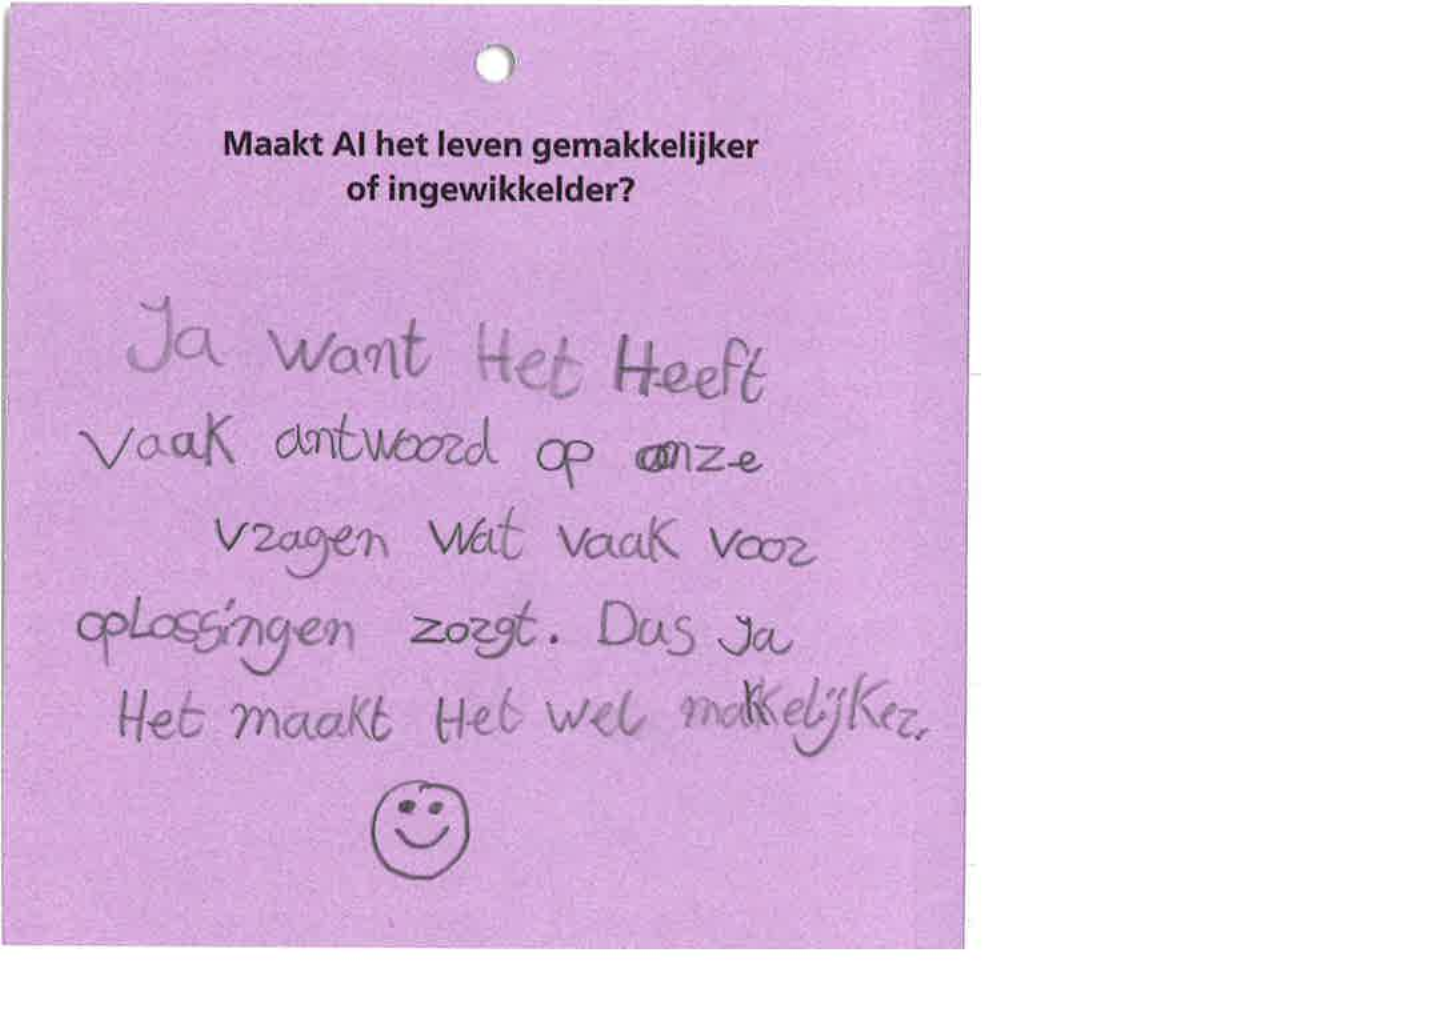 Maakt AI het leven gemakkelijker
of ingewikkelder?
Ja want Het Heeft
vaak antwoord op onze
vragen wat vaak voor
oplossingen zorgt. Dus Ja
Het maakt Het wel makkelijker.